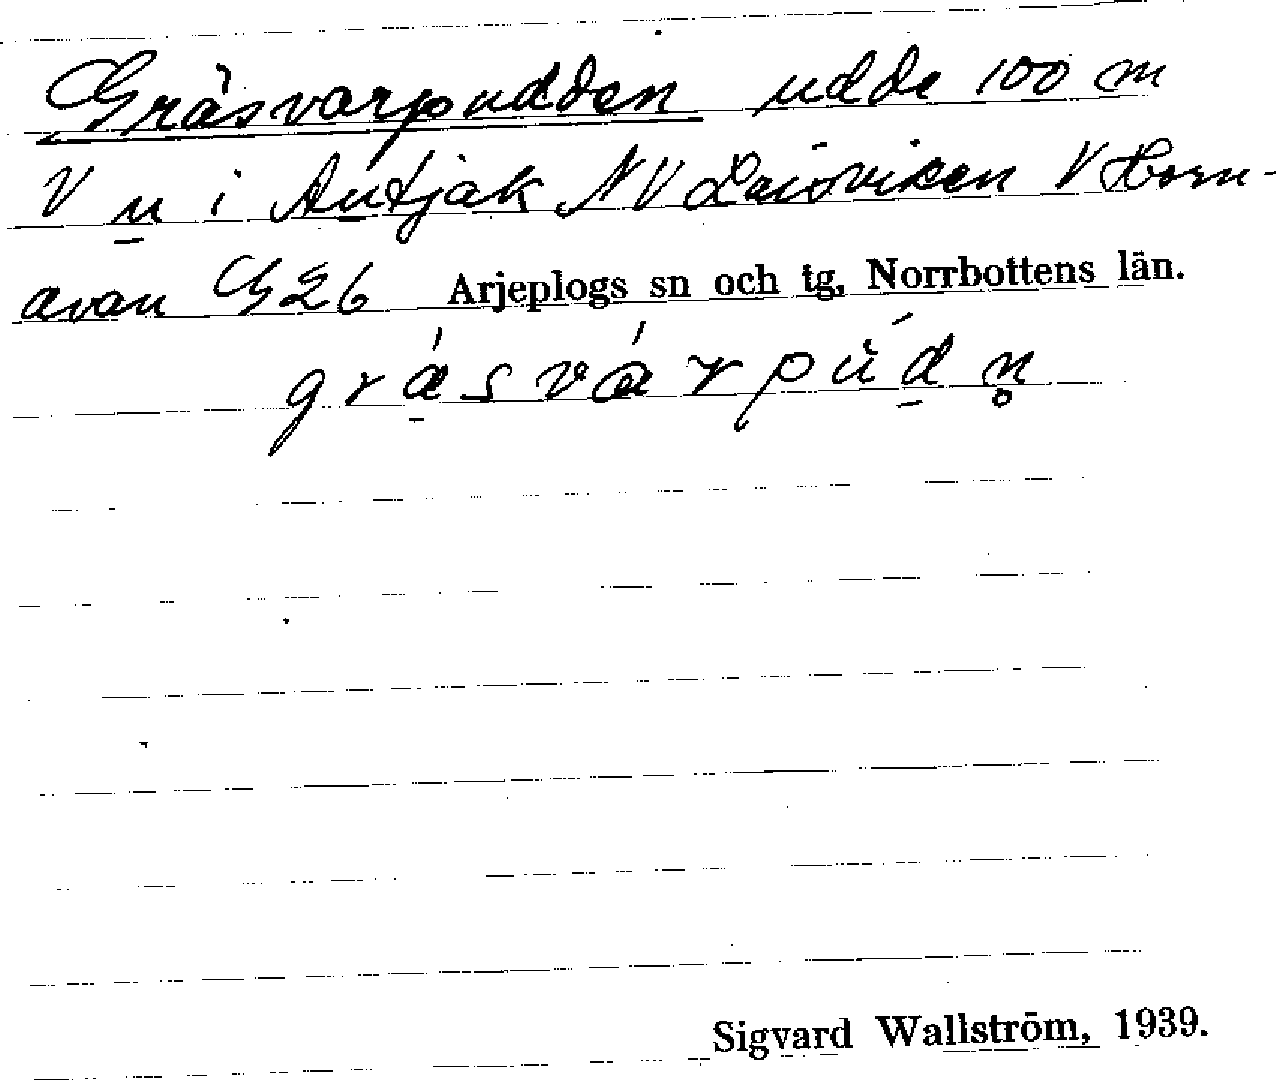 Gräsvarpudden udde 100 m
V u i Autjak NV Laisviken V Horn-
avan G26 Arjeplogs sn och tg, Norrbottens län.
Sigvard Wallström, 1939.